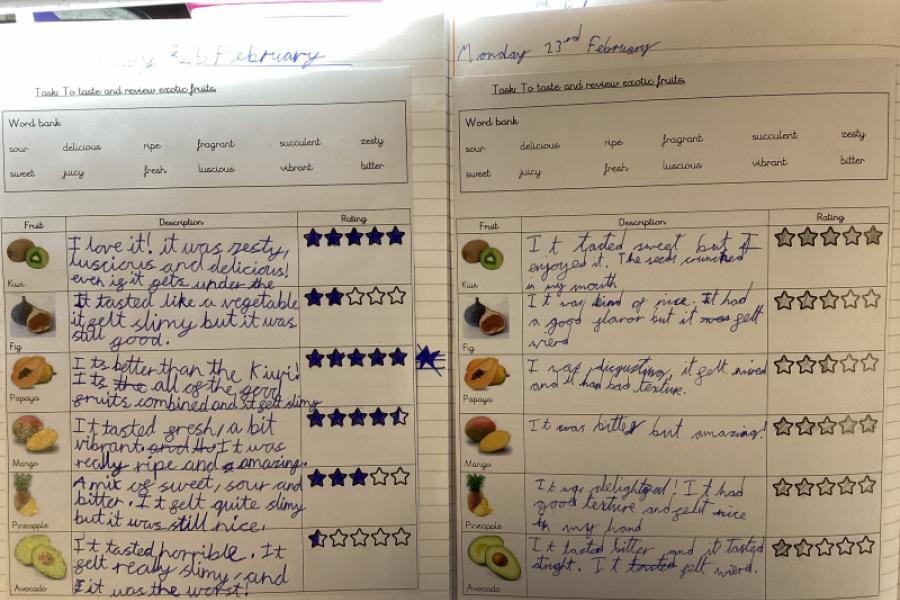 February
Task: To taste and review exotic fruits
Word bank
sour delicious ripe fragrant succulent zesty
sweet juicy fresh luscious vibrant bitter
Fruit Description Rating
Kiwi
I love it! it was zesty,
luscious and delicious!
even is it gets under the
Fig
It tasted like a vegetable
it felt slimy but it was
still good.
Papaya
Its better than the Kiwi!
Its the all of the good
fruits combined and it felt slimy
Mango
It tasted fresh, a bit
vibrant It was
really ripe and amazing.
Pineapple
A mix of sweet, sour and
bitter. It felt quite slimy
but it was still nice.
Avocado
It tasted horrible. It
felt really slimy, and
it was the worst!
Monday 23rd February
Task: To taste and review exotic fruits
Word bank
sour delicious ripe fragrant succulent zesty
sweet juicy fresh luscious vibrant bitter
Fruit Description Rating
Kiwi
It tasted sweet but I
enjoyed it. The seeds crunched
in my mouth
Fig
It was kind of nice. It had
a good flavor but it felt
wierd
Papaya
I was disgusting, it felt wierd
and it had bad texture.
Mango
It was bitter but amazing!
Pineapple
It was delightful! It had
good texture and felt nice
in my hand
Avocado
It tasted bitter and it tasted
alright. It tasted felt wierd.